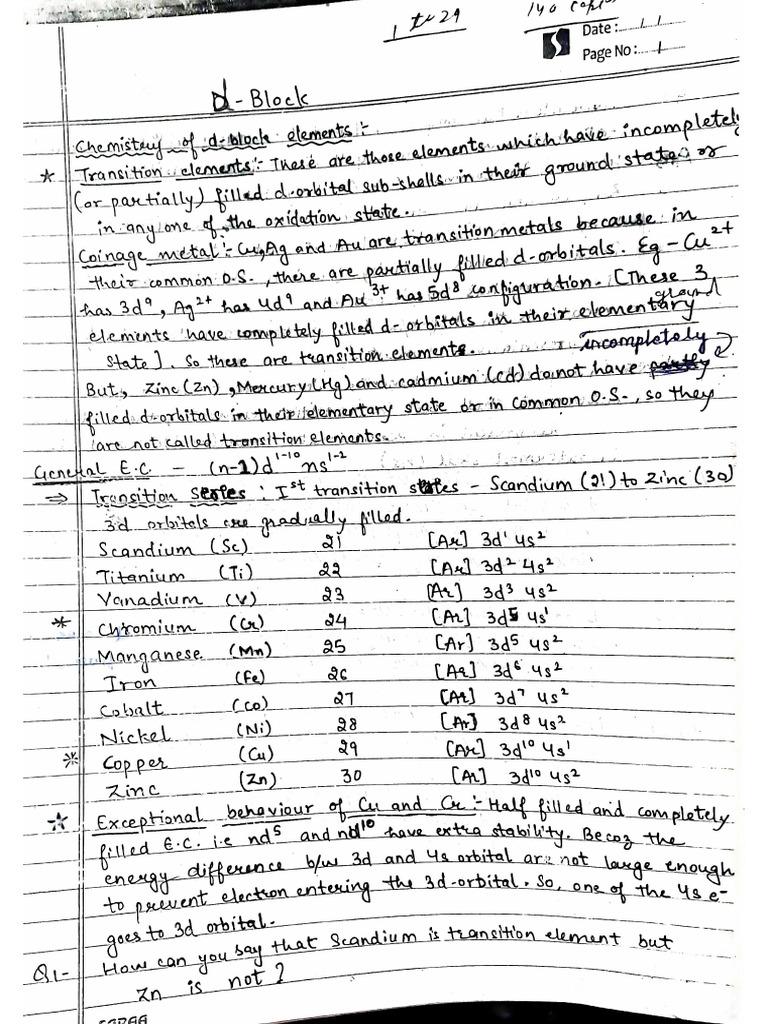 1 to 29
Date:
Page No: 1
d-Block
Chemistry of d-block elements:-
* Transition elements:- These are those elements which have incompletely
(or partially) filled d-orbital sub-shells in their ground state or
in any one of the oxidation state.
Coinage metal:- Cu, Ag and Au are transition metals because in
their common O.S., there are partially filled d-orbitals. Eg - Cu²⁺
has 3d⁹, Ag²⁺ has 4d⁹ and Au³⁺ has 5d⁸ configuration. [These 3
elements have completely filled d-orbitals in their elementary ground
state]. So these are transition elements.
But, Zinc (Zn), Mercury (Hg) and cadmium (cd) do not have incompletely
filled d-orbitals in their elementary state or in common O.S., so they
are not called transition elements.
General E.C. - (n-1)d¹⁻¹⁰ ns¹⁻²
⇒ Transition series: Iˢᵗ transition - Scandium (21) to Zinc (30)
3d orbitals are gradually filled.
Scandium (Sc) 21 [Ar] 3d¹ 4s²
Titanium (Ti) 22 [Ar] 3d² 4s²
Vanadium (V) 23 [Ar] 3d³ 4s²
* Chromium (Cr) 24 [Ar] 3d⁵ 4s¹
Manganese (Mn) 25 [Ar] 3d⁵ 4s²
Iron (Fe) 26 [Ar] 3d⁶ 4s²
Cobalt (Co) 27 [Ar] 3d⁷ 4s²
Nickel (Ni) 28 [Ar] 3d⁸ 4s²
* Copper (Cu) 29 [Ar] 3d¹⁰ 4s¹
Zinc (Zn) 30 [Ar] 3d¹⁰ 4s²
* Exceptional behaviour of Cu and Cr:- Half filled and completely
filled E.C. i.e nd⁵ and nd¹⁰ have extra stability. Becoz the
energy difference b/w 3d and 4s orbital are not large enough
to prevent electron entering the 3d-orbital. So, one of the 4s e-
goes to 3d orbital.
Q1- How can you say that Scandium is transition element but
Zn is not?